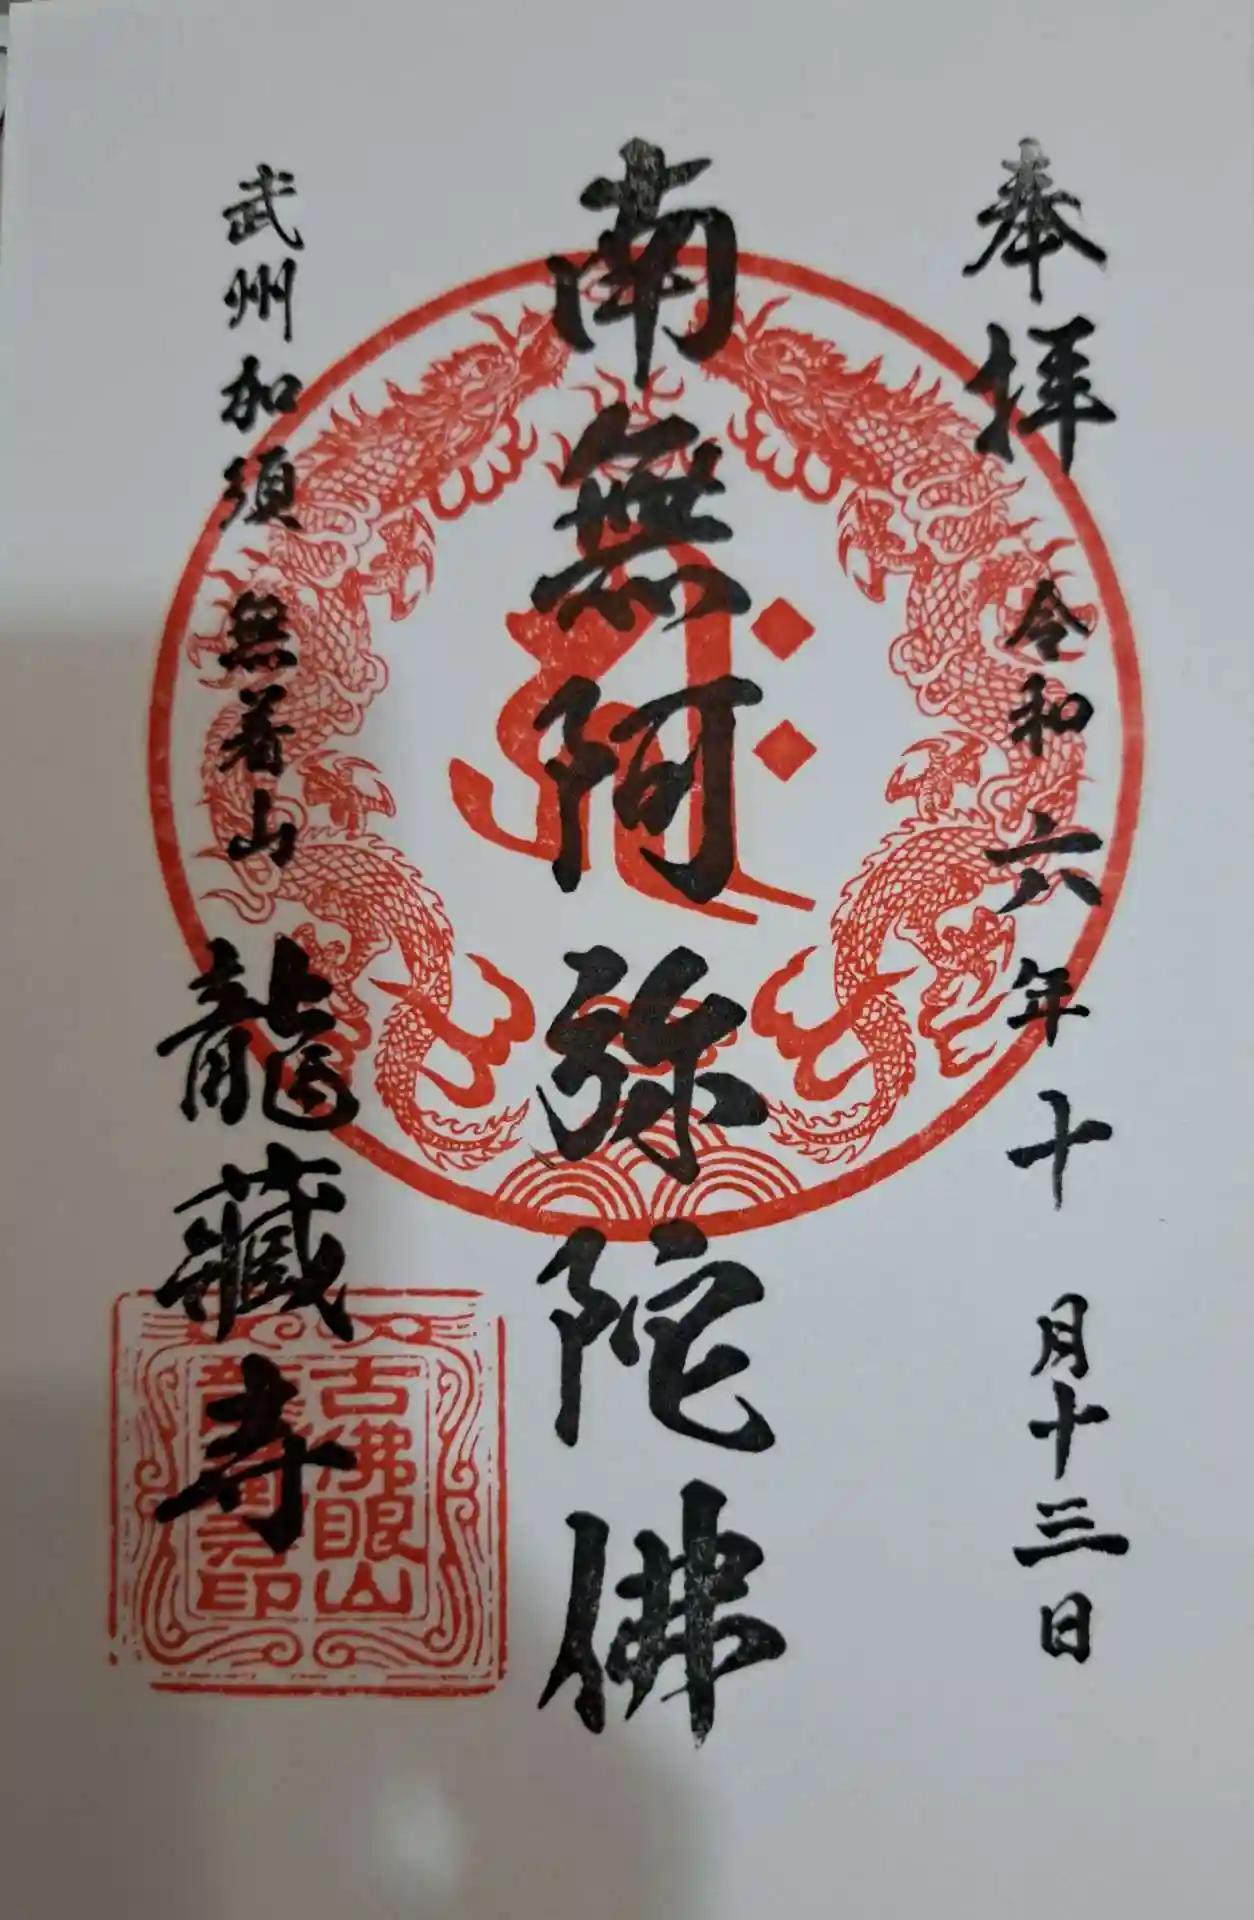 奉拝
令和六年十月十三日
南無阿弥陀佛
武州加須 無着山
龍藏寺
古佛眼山
印